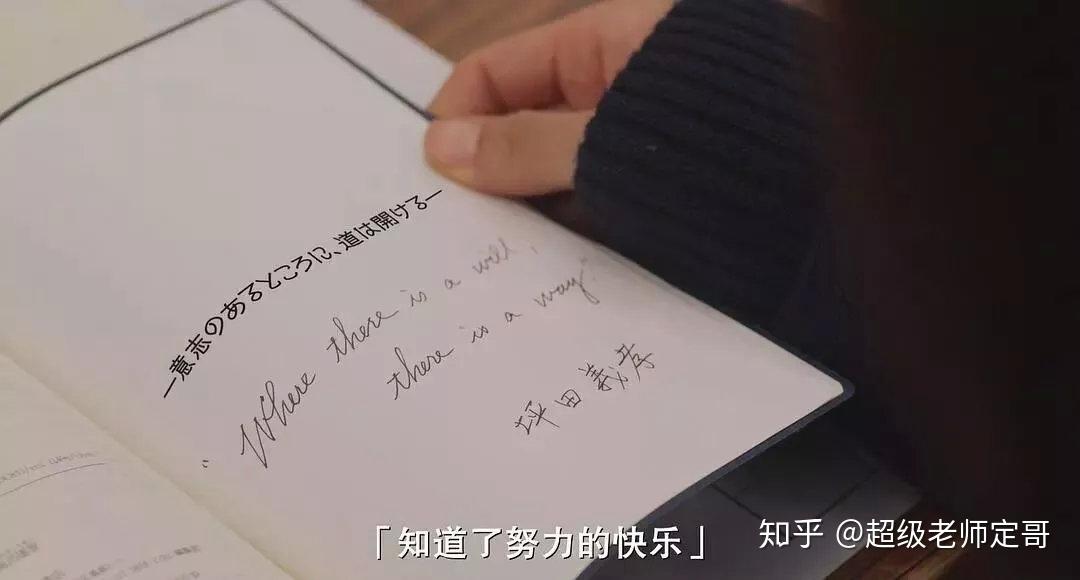 ―意志のあるところに、道は開ける―
"Where there is a will,
there is a way."
坪田義孝
「知道了努力的快乐」
知乎 @超级老师定哥